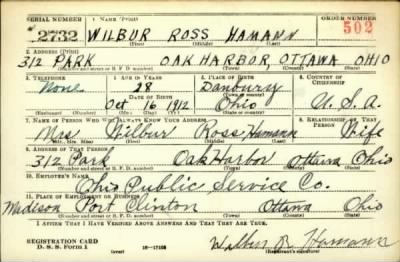 SERIAL NUMBER 1. NAME (Print) ORDER NUMBER
2732 WILBUR ROSS HAMANN 502
(First) (Middle) (Last)
2. ADDRESS (Print)
312 PARK OAK HARBOR, OTTAWA OHIO
(Number and street or R. F. D. number) (Town) (County) (State)
3. TELEPHONE 4. AGE IN YEARS 5. PLACE OF BIRTH 6. COUNTRY OF CITIZENSHIP
None 28 Danbury
DATE OF BIRTH
Oct 16 1912 Ohio U.S.A.
(Exchange) (No.) (Mo.) (Day) (Yr.) (State or country)
7. NAME OF PERSON WHO WILL ALWAYS KNOW YOUR ADDRESS 8. RELATIONSHIP OF THAT PERSON
Mrs Wilbur Ross Hamann Wife
(Mr., Mrs., Miss) (First) (Middle) (Last)
9. ADDRESS OF THAT PERSON
312 Park Oak Harbor Ottawa Ohio
(Number and street or R. F. D. number) (Town) (County) (State)
10. EMPLOYER'S NAME
Ohio Public Service Co.
11. PLACE OF EMPLOYMENT OR BUSINESS
Madison Port Clinton Ottawa Ohio
(Number and street or R. F. D. number) (Town) (County) (State)
I AFFIRM THAT I HAVE VERIFIED ABOVE ANSWERS AND THAT THEY ARE TRUE.
REGISTRATION CARD
D. S. S. Form 1 (over) 16—17105 Wilbur R. Hamann